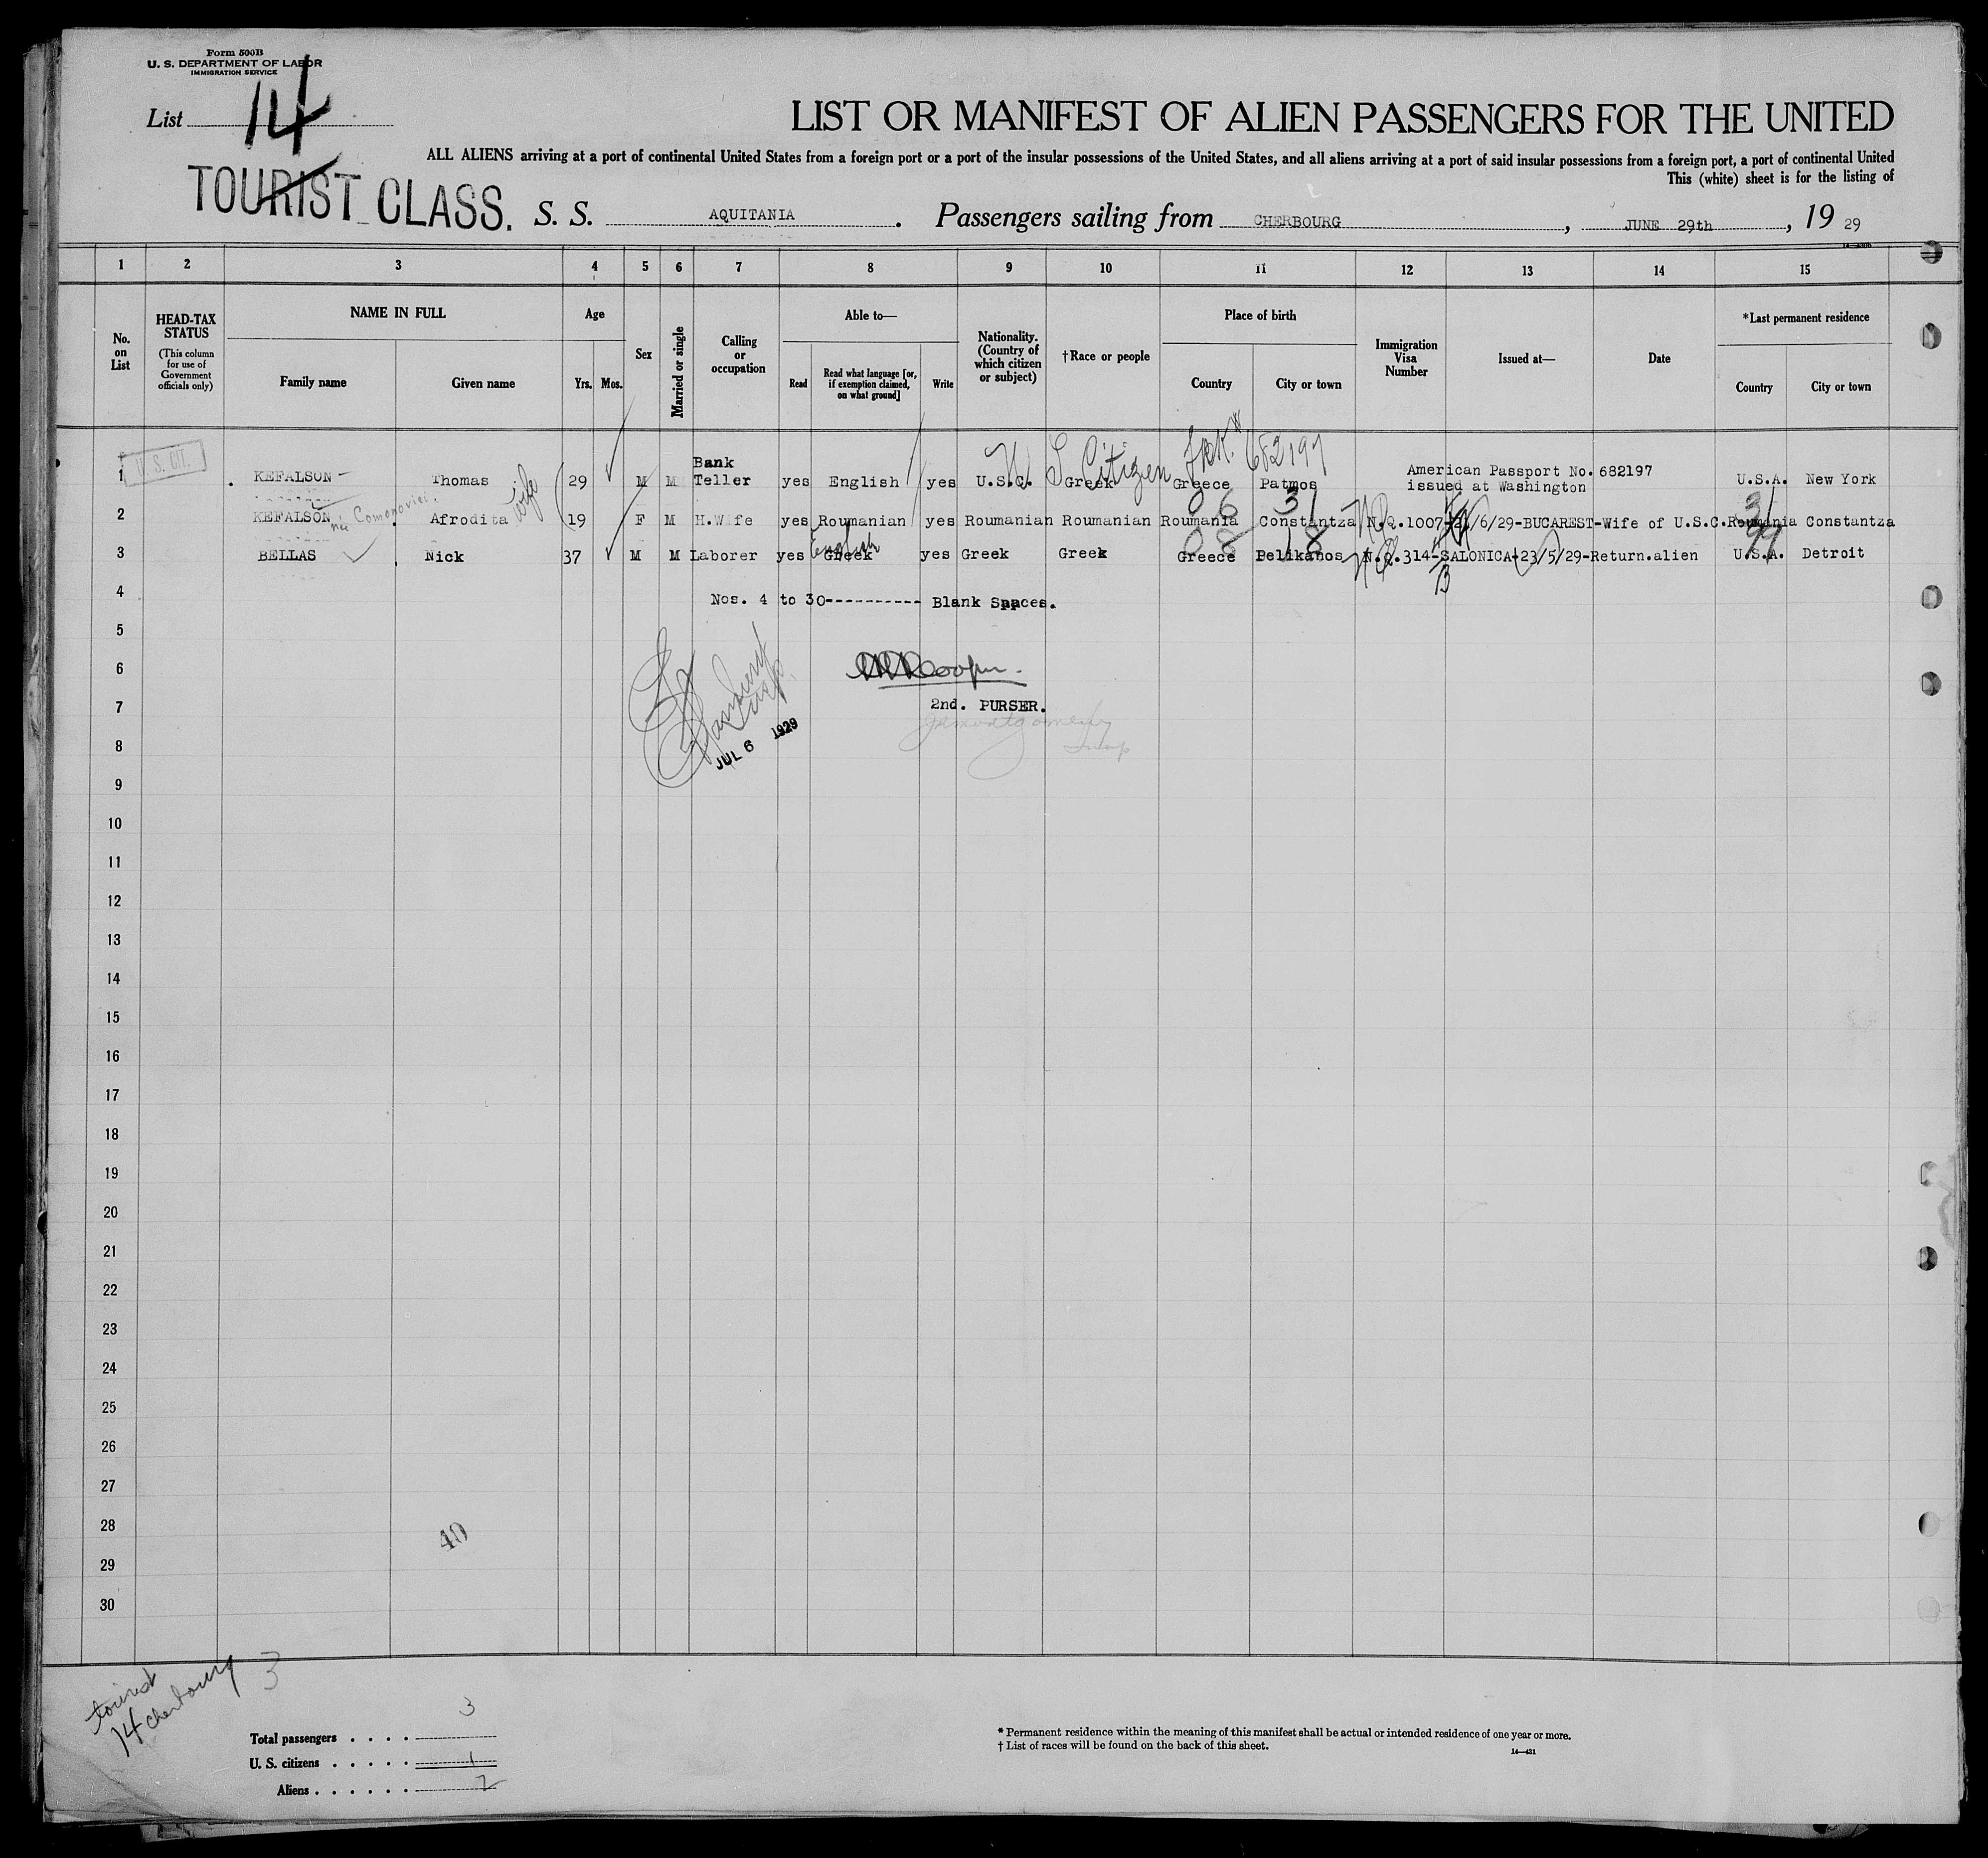 Form 500B
U. S. DEPARTMENT OF LABOR
IMMIGRATION SERVICE
List 14
LIST OR MANIFEST OF ALIEN PASSENGERS FOR THE UNITED
ALL ALIENS arriving at a port of continental United States from a foreign port or a port of the insular possessions of the United States, and all aliens arriving at a port of said insular possessions from a foreign port, a port of continental United
This (white) sheet is for the listing of
TOURIST CLASS. S. S. AQUITANIA. Passengers sailing from CHERBOURG, JUNE 29th, 19 29
1 2 3 4 5 6 7 8 9 10 11 12 13 14 15
No. on List
HEAD-TAX STATUS
(This column for use of Government officials only)
NAME IN FULL
Family name Given name
Age
Yrs. Mos.
Sex
Married or single
Calling or occupation
Able to—
Read
Read what language [or, if exemption claimed, on what ground]
Write
Nationality. (Country of which citizen or subject)
†Race or people
Place of birth
Country City or town
Immigration Visa Number
Issued at—
Date
*Last permanent residence
Country City or town
U S Citizen 682197
1 U. S. CIT. KEFALSON Thomas 29 M M Bank Teller yes English yes U.S.C. Greek Greece Patmos American Passport No. 682197 issued at Washington U.S.A. New York
wife
06 31 31
2 KEFALSON Afrodita 19 F M H.Wife yes Roumanian yes Roumanian Roumanian Roumania Constantza N.Q.1007- /6/29-BUCAREST-Wife of U.S.C. Roumania Constantza
English
08 18 99
3 BELLAS Nick 37 M M Laborer yes Greek yes Greek Greek Greece Pelikanos N.Q.314-SALONICA-23/5/29-Return.alien U.S.A. Detroit
4 Nos. 4 to 30---------- Blank Spaces.
5
6 Cooper
7 2nd. PURSER.
JUL 6 1929
8
9
10
11
12
13
14
15
16
17
18
19
20
21
22
23
24
25
26
27
28
40
29
30
tourist
14 Cherbourg 3
Total passengers . . . . 3
U. S. citizens . . . . . 1
Aliens . . . . . . 2
* Permanent residence within the meaning of this manifest shall be actual or intended residence of one year or more.
† List of races will be found on the back of this sheet.
14—431